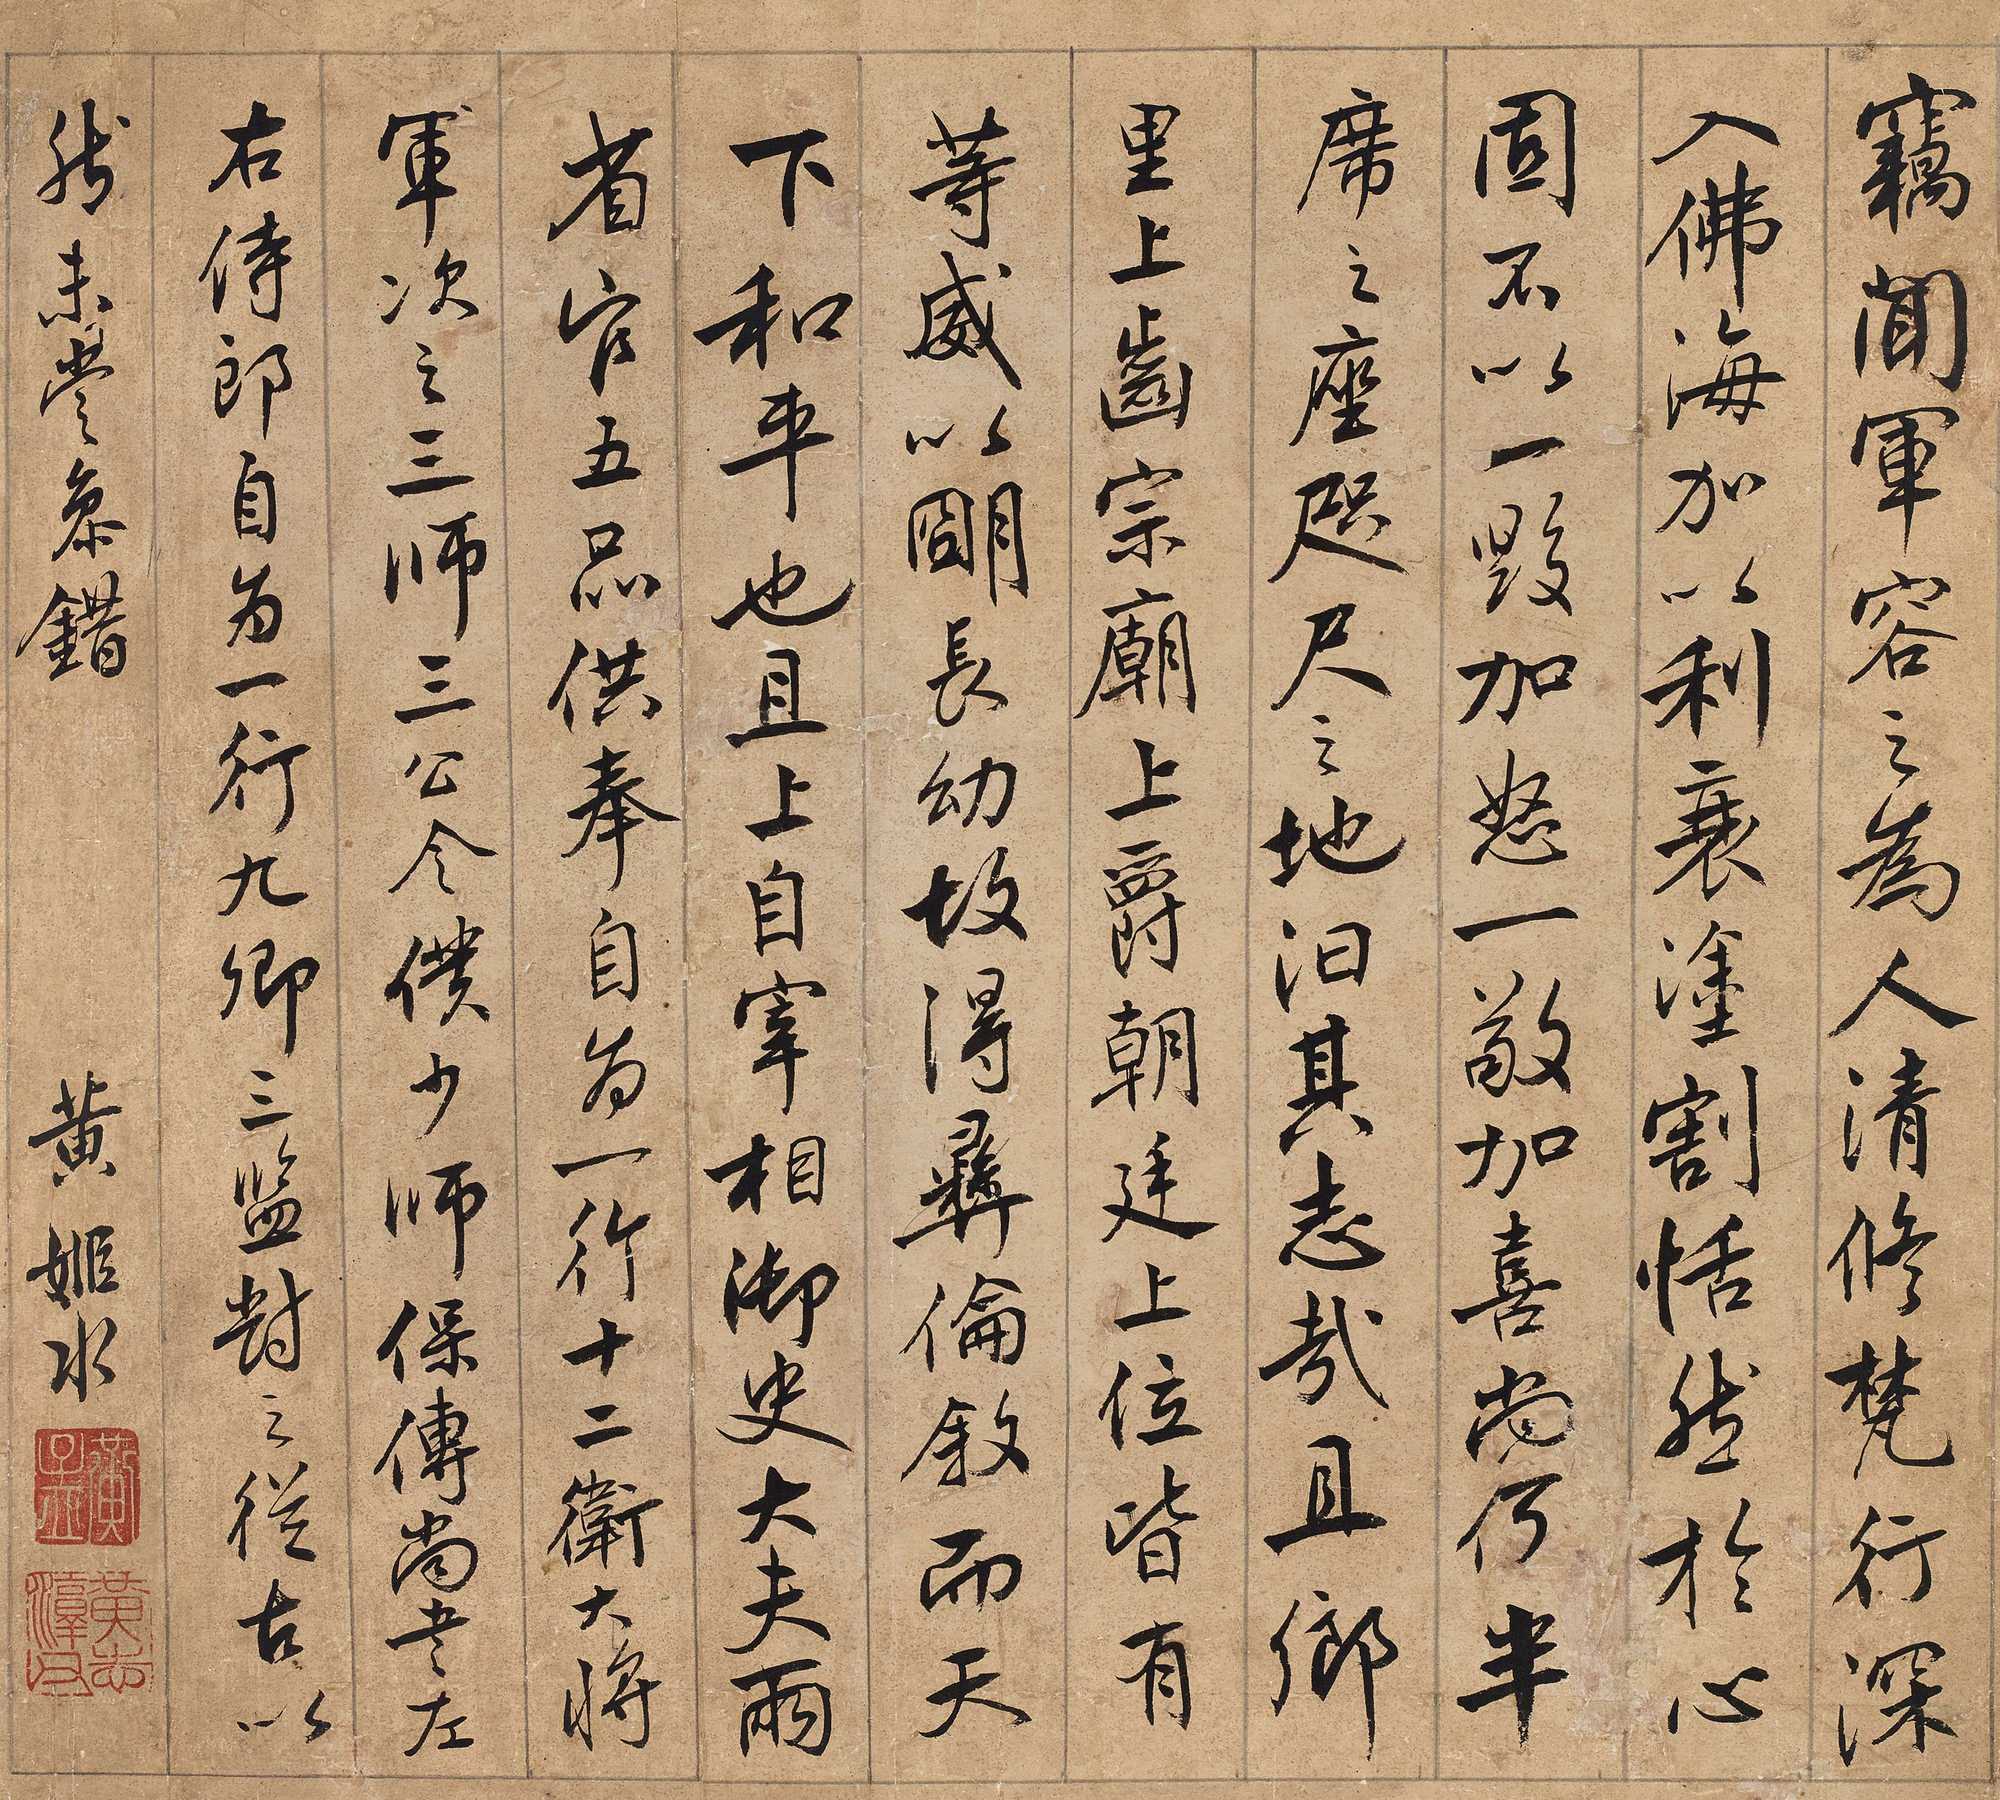 竊聞軍容之為人清修梵行深
入佛海加以利衰塗割恬然於心
固不以一毀加怒一敬加喜尚何半
席之座咫尺之地汩其志哉且鄉
里上齒宗廟上爵朝廷上位皆有
等威以明長幼故得彝倫敘而天
下和平也且上自宰相御史大夫兩
省官五品供奉自為一行十二衛大將
軍次之三師三公令僕少師保傅尚書左
右侍郎自為一行九卿三監對之從古以
然未嘗參錯
黃姬水
黃姬水
黃志淳父